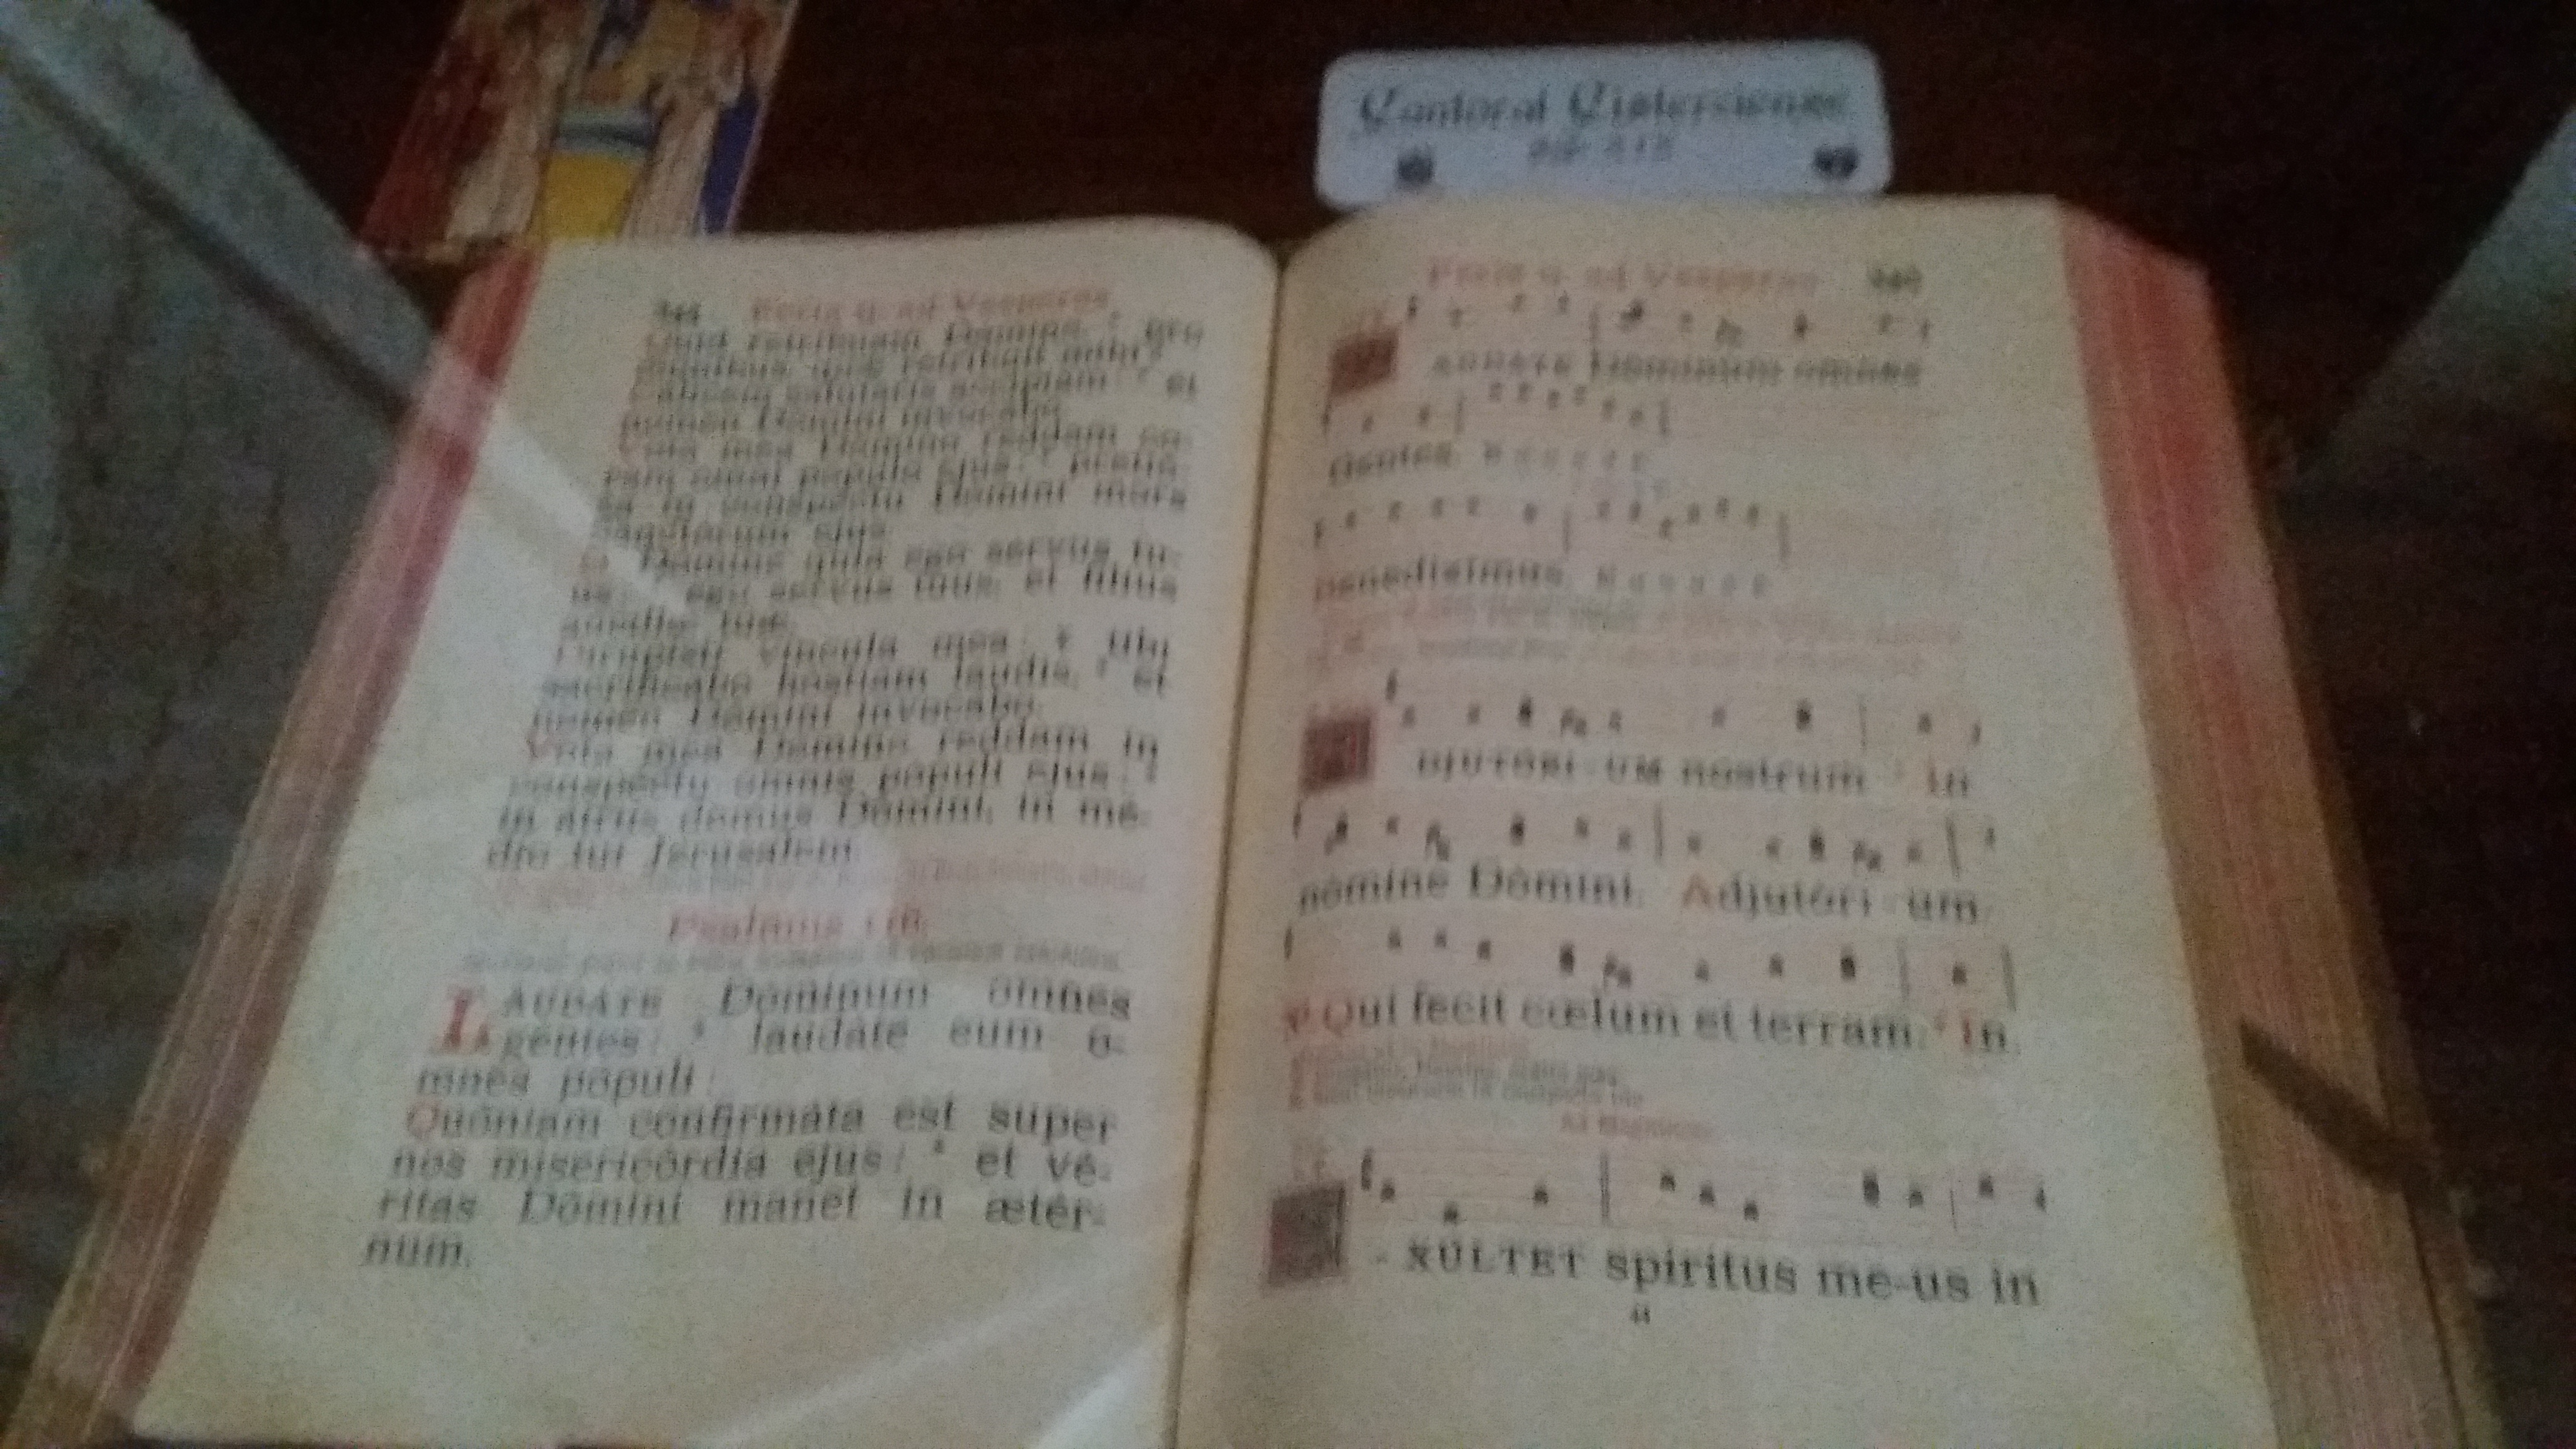 Cantoral Cisterciense
Feria ij. ad Vesperas
Quid retribuam Domino, * pro
omnibus quæ retribuit mihi?
Calicem salutaris accipiam: * et
nomen Domini invocabo.
Vota mea Domino reddam co-
ram omni populo ejus: * pretió-
sa in conspectu Domini mors
Sanctorum ejus.
O Domine quia ego servus tu-
us: * ego servus tuus, et filius
ancillæ tuæ.
Dirupisti vincula mea: * tibi
sacrificabo hostiam laudis, * et
nomen Domini invocabo.
Vota mea Domino reddam in
conspectu omnis populi ejus: *
in atriis domus Dómini, in mé-
dio tui Jerusalem.
Psalmus 116.
LAUDATE Dóminum omnes
gentes: * laudáte eum o-
mnes pópuli:
Quóniam confirmáta est super
nos misericórdia ejus: * et vé-
ritas Dómini manet in ætér-
num.
Feria ij. ad Vesperas
AUDATE Dominum omnes
Gentes. E u o u a e
benedicimus. E u o u a e
DJUTÓRI-UM nostrum * In
nómine Dómini. Adjutóri-um
℣ Qui fecit cœlum et terram. * In
Ad Magnificat
- XÚLTET spíritus me-us in